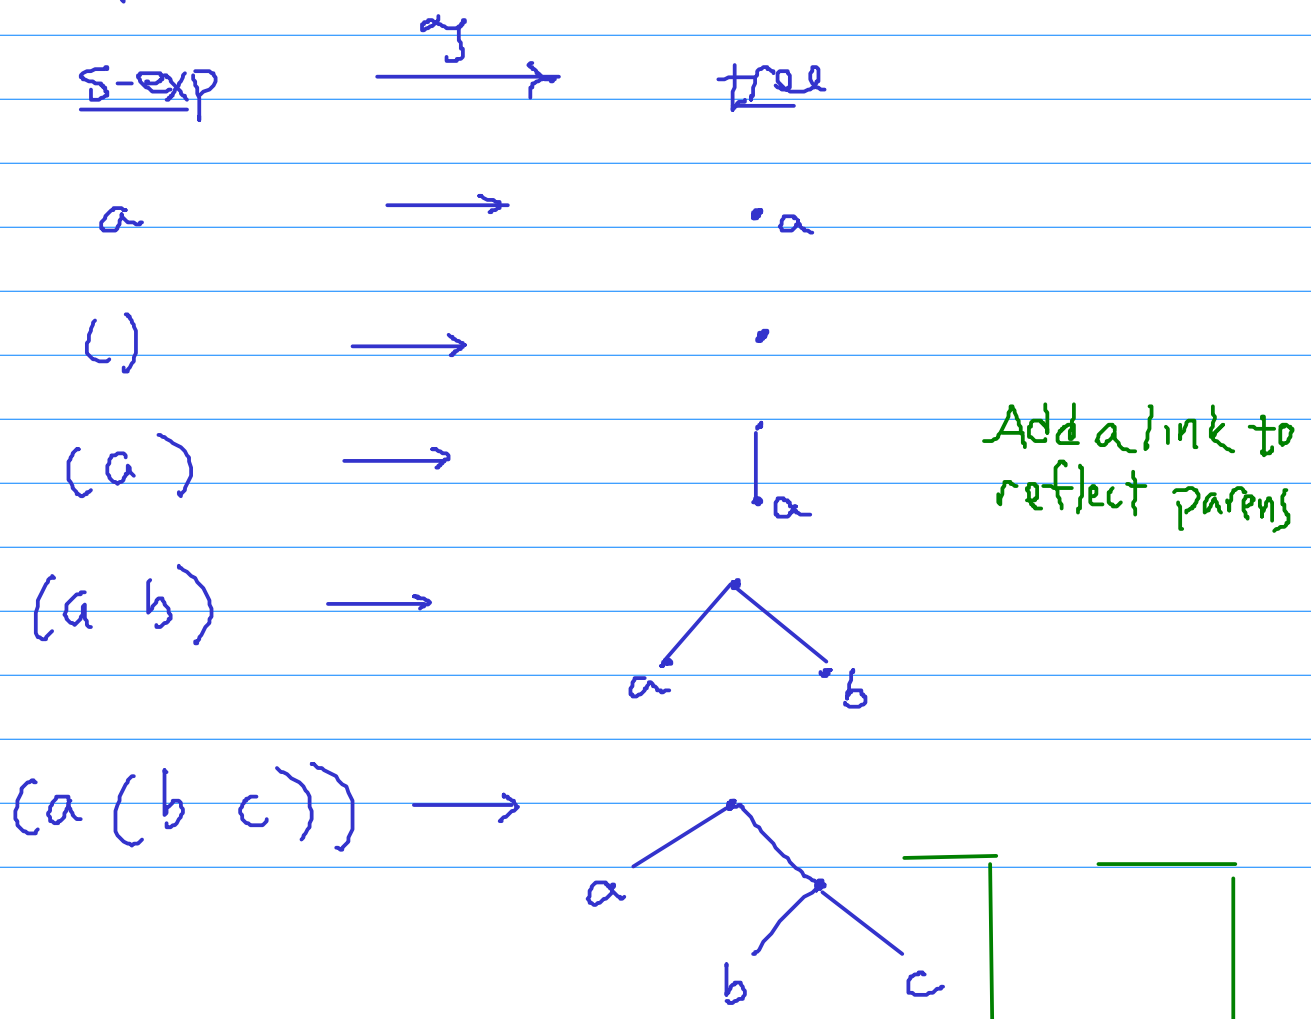 s-exp → tree
a → • a
() → •
(a) → a
Add a link to
reflect parens
(a b) → a b
(a (b c)) → a
b c